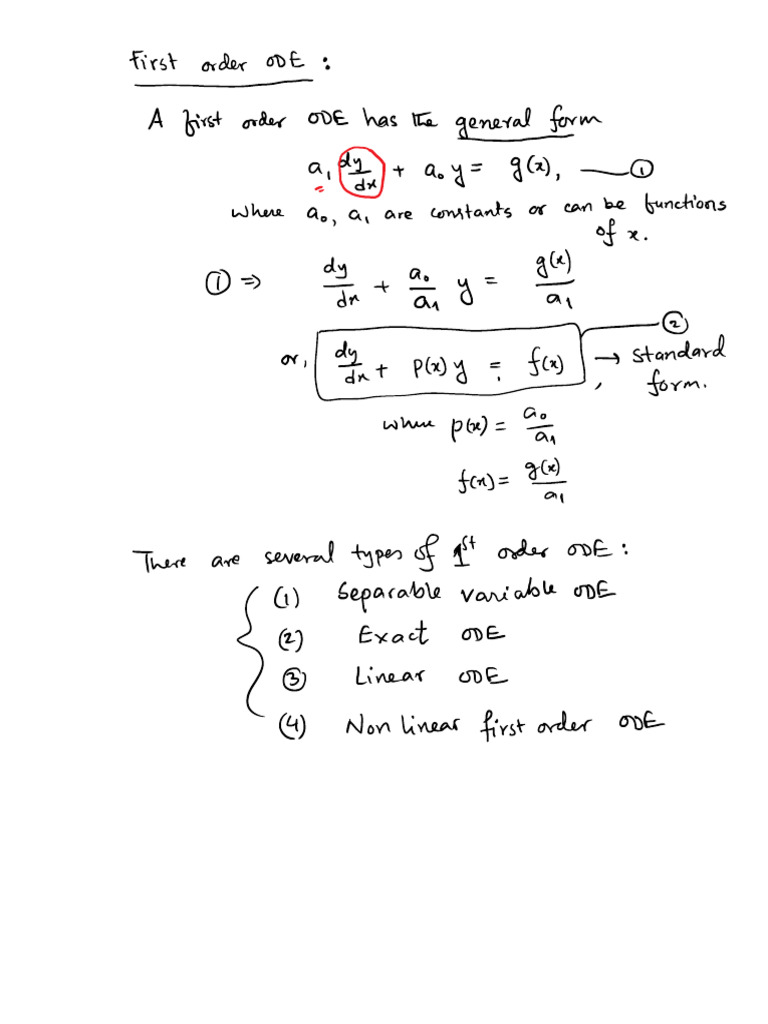 First order ODE :
A first order ODE has the general form
a₁ dy/dx + a₀ y = g(x), — ①
where a₀, a₁ are constants or can be functions
of x.
① ⇒ dy/dx + a₀/a₁ y = g(x)/a₁
②
or, dy/dx + p(x) y = f(x) → standard
form.
where p(x) = a₀/a₁
f(x) = g(x)/a₁
There are several types of 1st order ODE :
(1) Separable variable ODE
(2) Exact ODE
③ Linear ODE
(4) Non linear first order ODE